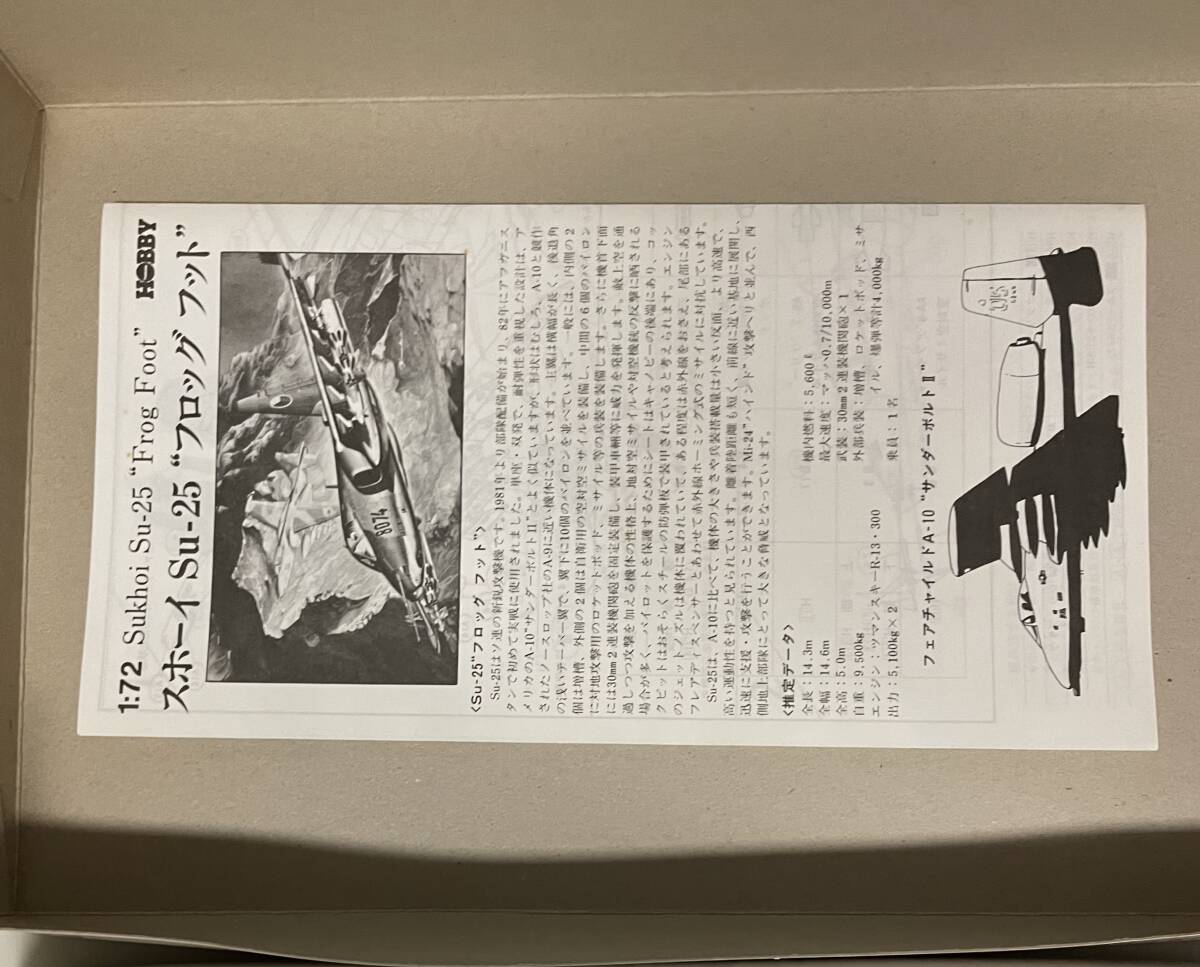 1:72 Sukhoi Su-25 “Frog Foot”
HOBBY
スホーイ Su-25 “フロッグ フット”
8074
〈Su-25“フロッグ フット”〉
Su-25はソ連の新鋭攻撃機です。1981年より部隊配備が始まり、82年にアフガニス
タンで初めて実戦に使用されました。単座・双発で、耐弾性を重視した設計は、ア
メリカのA-10“サンダーボルトII”とよく似ていますが、形状はむしろ、A-10と競作
されたノースロップ社のA-9に近い機体になっています。主翼は横幅が長く、後退角
の浅いテーパー翼で、翼下に10個のパイロンを並べています。一般には、内側の2
個は増槽、外側の2個は自衛用の空対空ミサイルを装備し、中間の6個のパイロン
に対地攻撃用のロケットポッド、ミサイル等の兵装を装備します。さらに機首下面
には30mm2連装機関砲を固定装備し、装甲車輌等に威力を発揮します。敵上空を通
過しつつ攻撃を加える機体の性格上、地対空ミサイルや対空機銃の反撃に晒される
場合が多く、パイロットを保護するためにシートはキャノピーの後端にあり、コッ
クピットはおそらくスチールの防弾板で装甲されていると考えられます。エンジン
のジェットノズルは機体に覆われていて、ある程度は赤外線をおさえ、尾部にある
フレアディスペンサーとあわせて赤外線ホーミング式のミサイルに対抗しています。
Su-25は、A-10に比べて、機体の大きさや兵装搭載量は小さい反面、より高速で、
高い運動性を持つと見られています。離着陸距離も短く、前線に近い基地に展開し、
迅速に支援・攻撃を行うことができます。Mi-24“ハインド”攻撃ヘリと並んで、西
側地上部隊にとって大きな脅威となっています。
〈推定データ〉
全長：14.3m
全幅：14.6m
全高：5.0m
自重：9,500kg
エンジン：ツマンスキーR-13・300
出力：5,100kg×2
機内燃料：5,600ℓ
最大速度：マッハ0.7/10,000m
武装：30mm2連装機関砲×1
外部兵装：増槽、ロケットポッド、ミサ
イル、爆弾等計4,000kg
乗員：1名
フェアチャイルドA-10“サンダーボルトII”